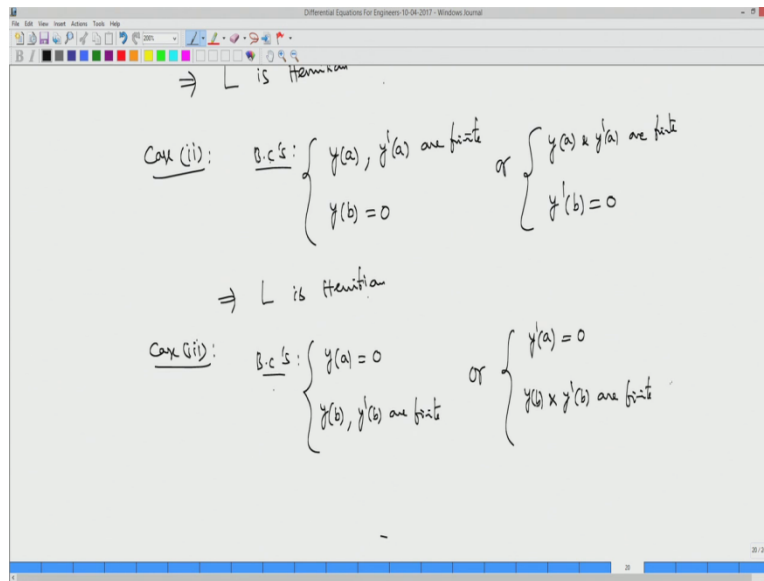 Differential Equations For Engineers-10-04-2017 - Windows Journal
File Edit View Insert Actions Tools Help
200%
B I
⇒ L is Hermitian
Case (ii): B.C's: { y(a), y'(a) are finite or { y(a) & y'(a) are finite
y(b) = 0 y'(b) = 0
⇒ L is Hermitian
Case (iii): B.C's: { y(a) = 0 or { y'(a) = 0
y(b), y'(b) are finite y(b) & y'(b) are finite
20 / 2
20